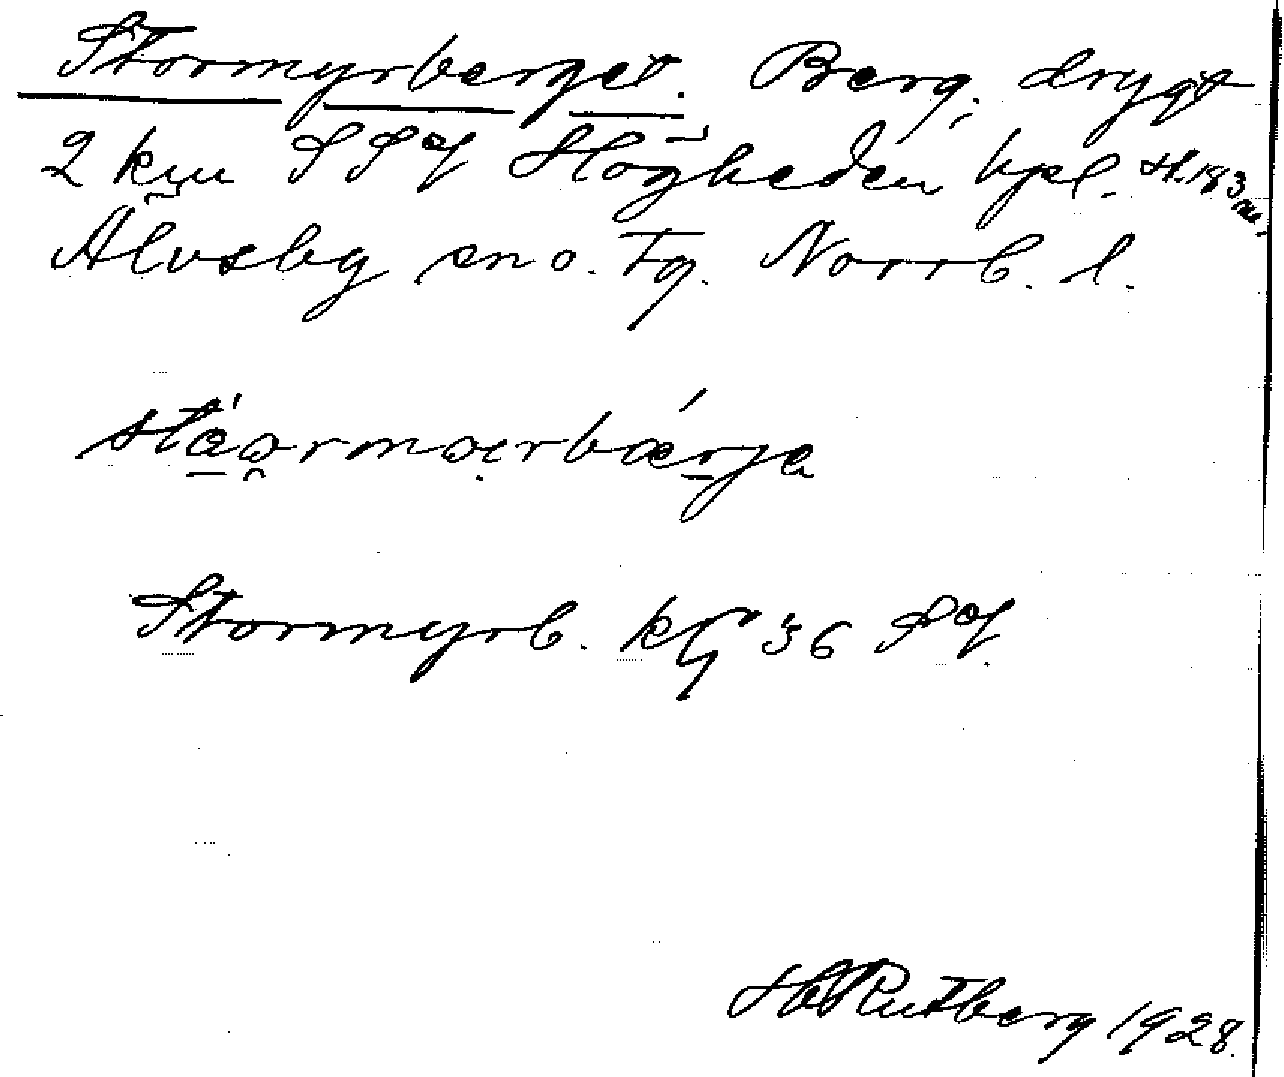 Stormyrberget. Berg, drygt
2 km SSV Högheden hpl. H. 183 m.
Älvsby sn o. tg. Norrb. l.
Stormyrb. kG 36 SV.
H Rutberg 1928.